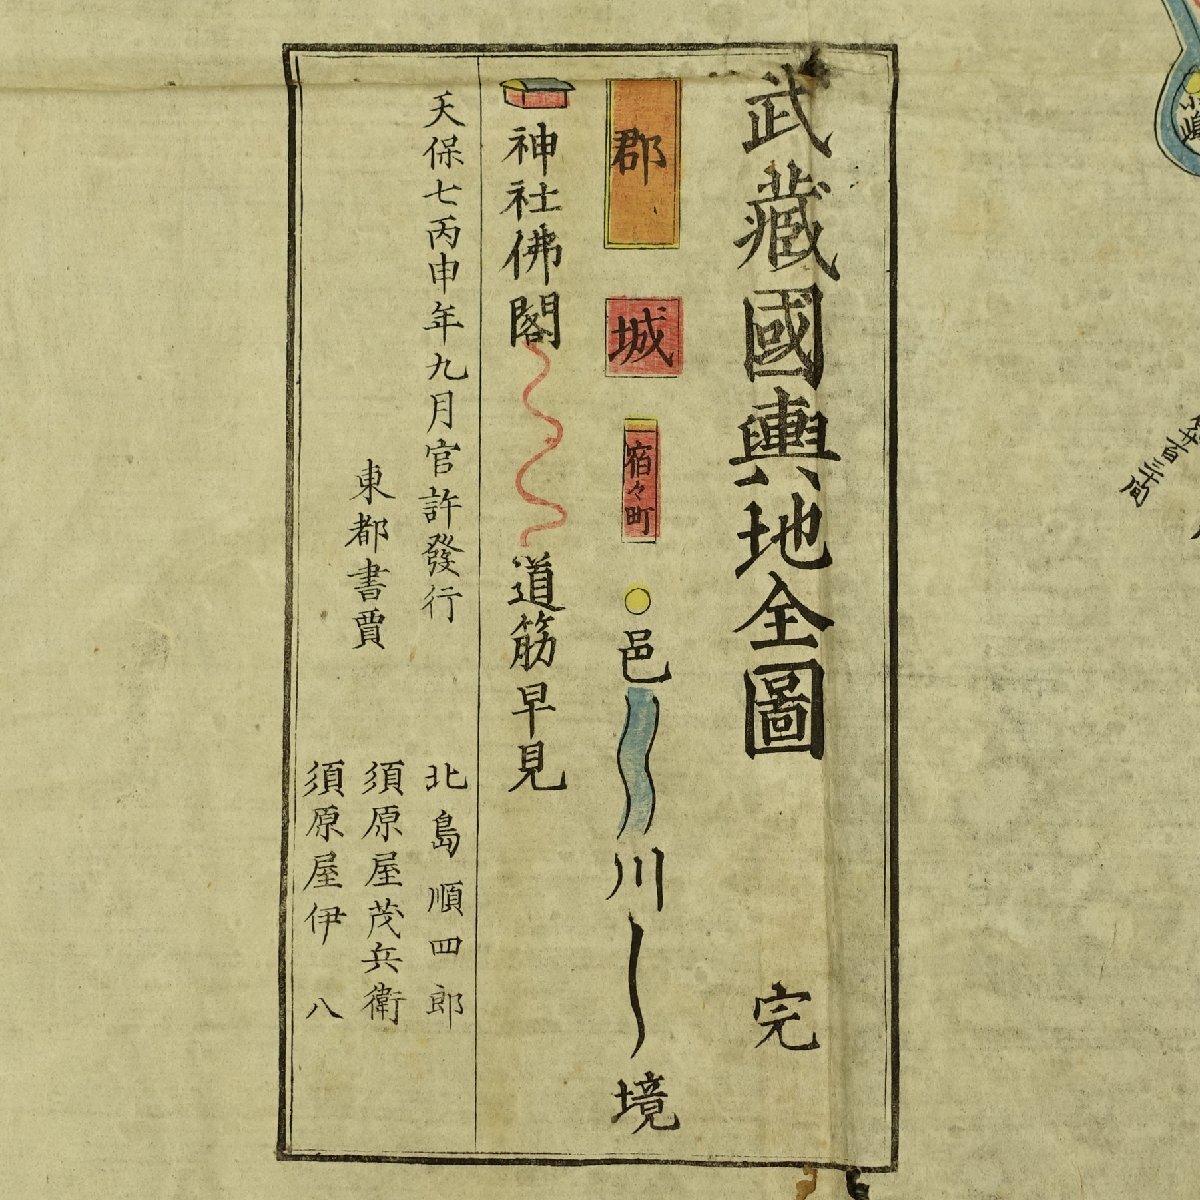 武藏國輿地全圖 完
郡 城 宿々町 邑 川 境
神社佛閣 道筋早見
天保七丙申年九月官許發行
東都書賈
北島順四郎
須原屋茂兵衛
須原屋伊八